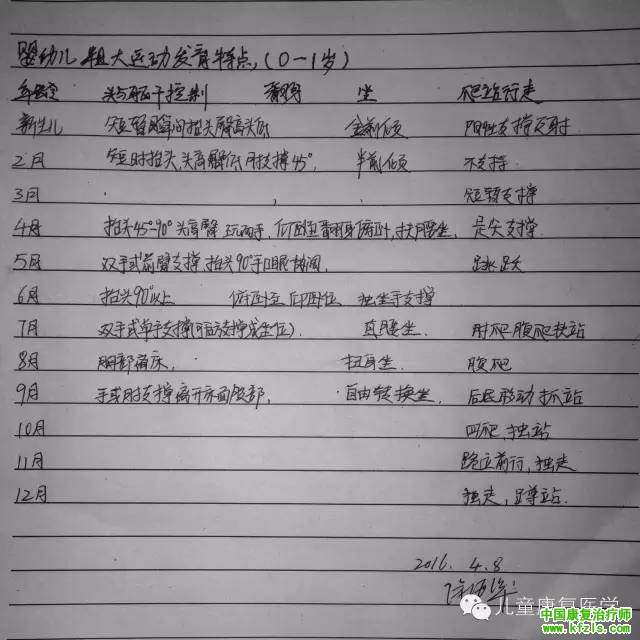 婴幼儿粗大运动发育特点，(0-1岁)
年龄 头与躯干控制 翻身 坐 爬站行走
新生儿 短暂瞬间抬头臀高头低 全前倾 阳性支撑反射
2月 短时抬头，头高臀低肘支撑45°. 半前倾 不支撑
3月 短暂支撑
4月 抬头45°-90°头高臀 玩两手，仰卧位翻身俯卧，扶腰坐. 足尖支撑.
5月 双手或前臂支撑，抬头90°手口眼协调. 跳跃
6月 抬头90°以上 俯卧位 仰卧位 独坐手支撑
7月 双手或单手支撑(可后支撑成坐位). 直腰坐. 肘爬腹爬扶站
8月 胸部离床. 扭身坐. 腹爬
9月 手或肘支撑离开床面腹部， 自由转换坐. 后退移动 抓站
10月 四爬，独站
11月 跪立前行，独走
12月 独走，蹲站.
2016. 4.8
儿童康复医学
中国康复治疗师
www.kfzls.com